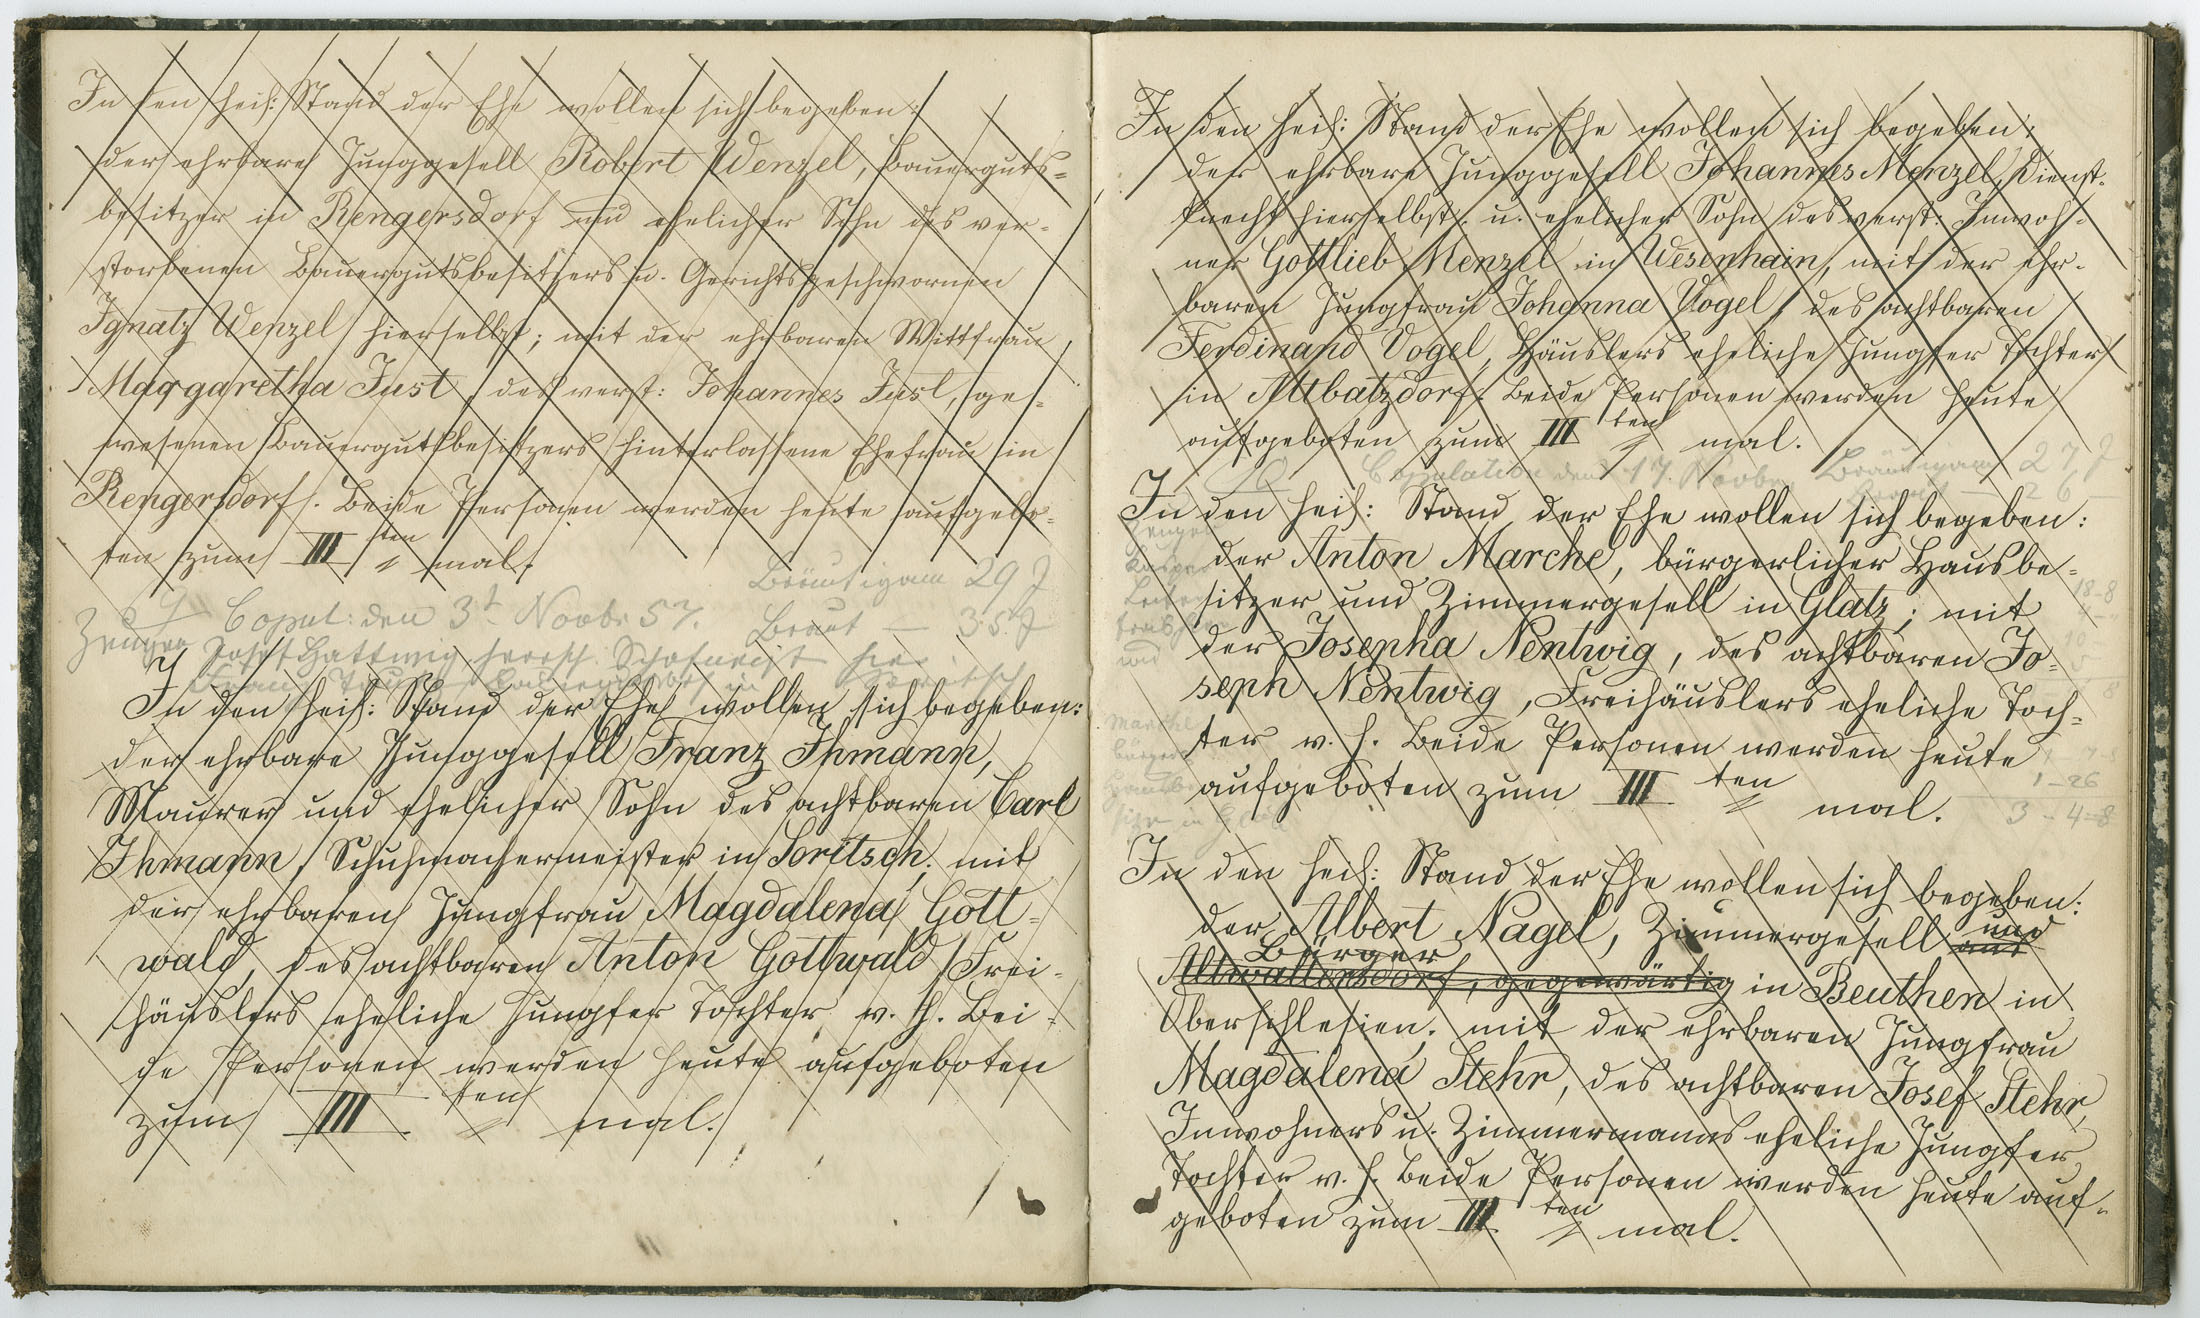 In den heil: Stand der Ehe wollen sich begeben:
der ehrbare Junggesell Robert Wenzel, Bauerguts-
besitzer in Rengersdorf und ehelicher Sohn des ver-
storbenen Bauergutsbesitzers u. Gerichtsgeschwornen
Ignatz Wenzel hierselbst; mit der ehrbaren Wittfrau
Margaretha Just, des verst: Johannes Just, ge-
wesenen Bauergutsbesitzers hinterlassene Ehefrau in
Rengersdorf. Beide Personen werden heute aufgebo-
ten zum III ten mal.
Bräutigam 29 J
Copul: den 3t Novbr 57. Braut — 35 J
Zeugen Josef Hattwig herrsch. hier
Franz in Soritsch
In den heil: Stand der Ehe wollen sich begeben:
der ehrbare Junggesell Franz Ihmann,
Maurer und ehelicher Sohn des achtbaren Carl
Ihmann, Schuhmachermeister in Soritsch; mit
der ehrbaren Jungfrau Magdalena Gott-
wald, des achtbaren Anton Gottwald, Frei-
häuslers eheliche Jungfer Tochter v. h. Bei-
de Personen werden heute aufgeboten
zum III ten mal.
In den heil: Stand der Ehe wollen sich begeben:
der ehrbare Junggesell Johannes Menzel, Dienst-
knecht hierselbst. u. ehelicher Sohn des verst: Inwoh-
ner Gottlieb Menzel in Wesenhain, mit der ehr-
baren Jungfrau Johanna Vogel, des achtbaren
Ferdinand Vogel, Häuslers eheliche Jungfer Tochter
in Altbatzdorf. Beide Personen werden heute
aufgeboten zum III ten mal.
Copulation den 17. Novbr. Bräutigam 27 J
26
In den heil: Stand der Ehe wollen sich begeben:
der Anton Marche, bürgerlicher Hausbe-
sitzer und Zimmergesell in Glatz; mit
der Josepha Nentwig, des achtbaren Jo-
seph Nentwig, Freihäuslers eheliche Toch-
ter v. h. Beide Personen werden heute
aufgeboten zum III ten mal.
Zeugen
und
Marche
bürger
Hausbe
sitzer in Glatz
18-8
1-26
3-4-8
In den heil: Stand der Ehe wollen sich begeben:
der Albert Nagel, Zimmergesell aus und
Bürger
Altwaltersdorf, gegenwärtig in Beuthen in
Oberschlesien; mit der ehrbaren Jungfrau
Magdalena Stehr, des achtbaren Josef Stehr,
Inwohners u. Zimmermanns eheliche Jungfer
Tochter v. h. Beide Personen werden heute auf-
geboten zum III ten mal.